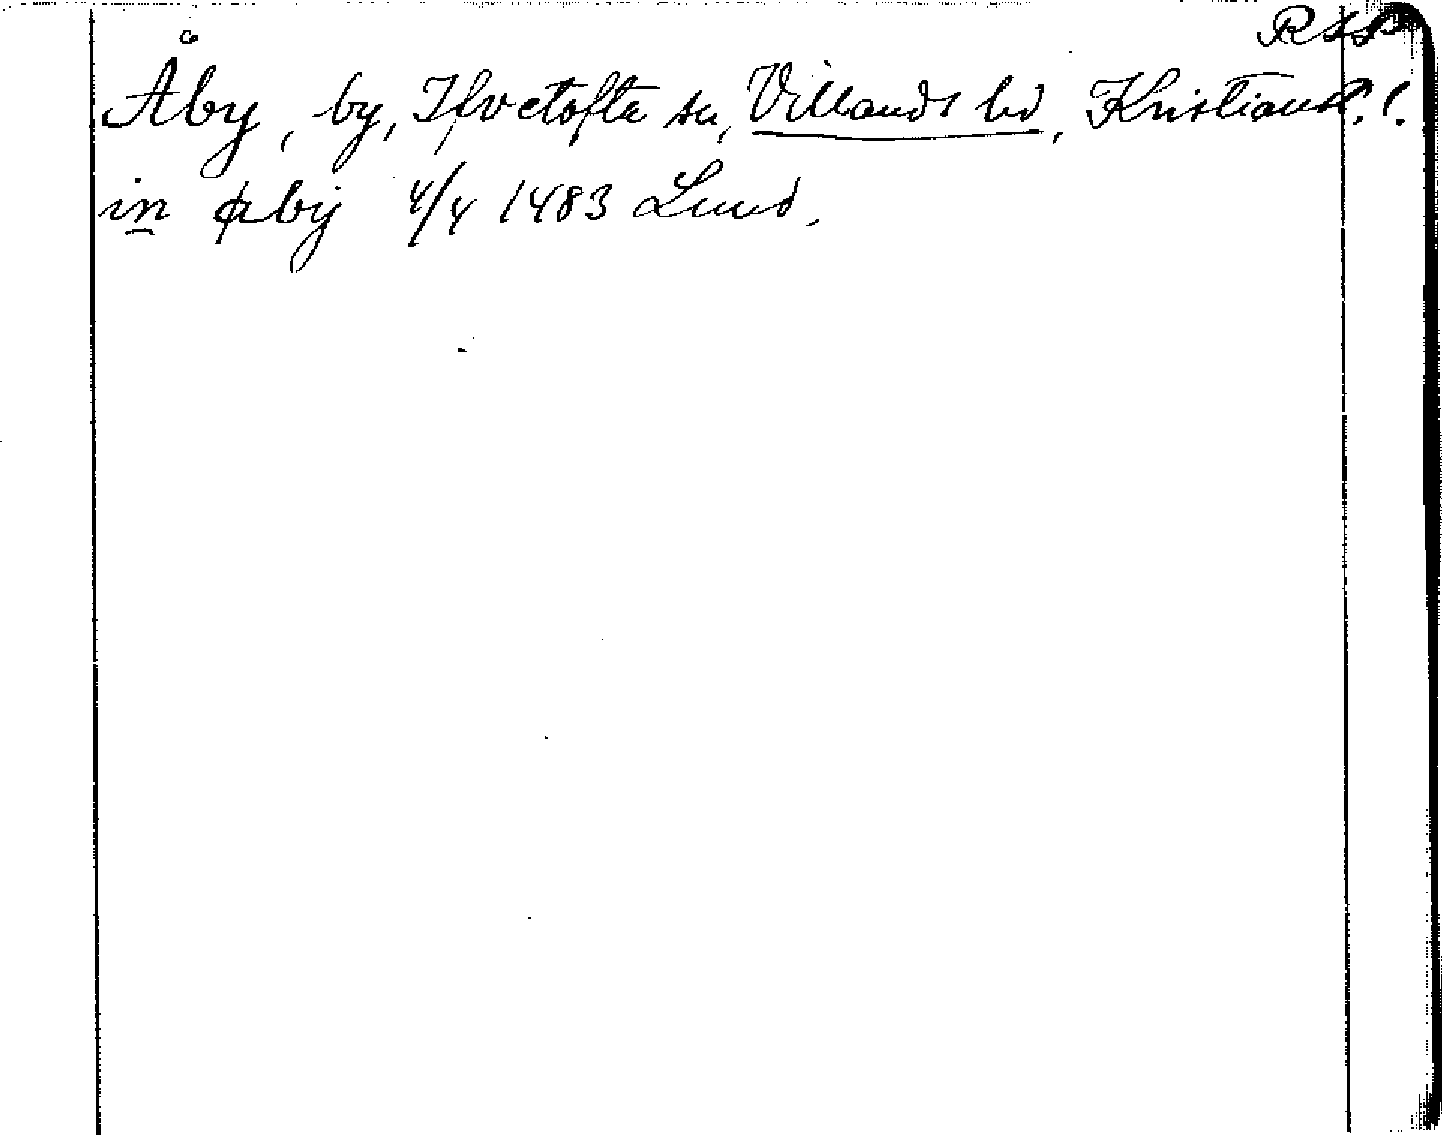 Åby, by, Ifvetofta sn, Villands hd, Kristianst. l.
in ꜳbÿ 4/4 1483 Lund.